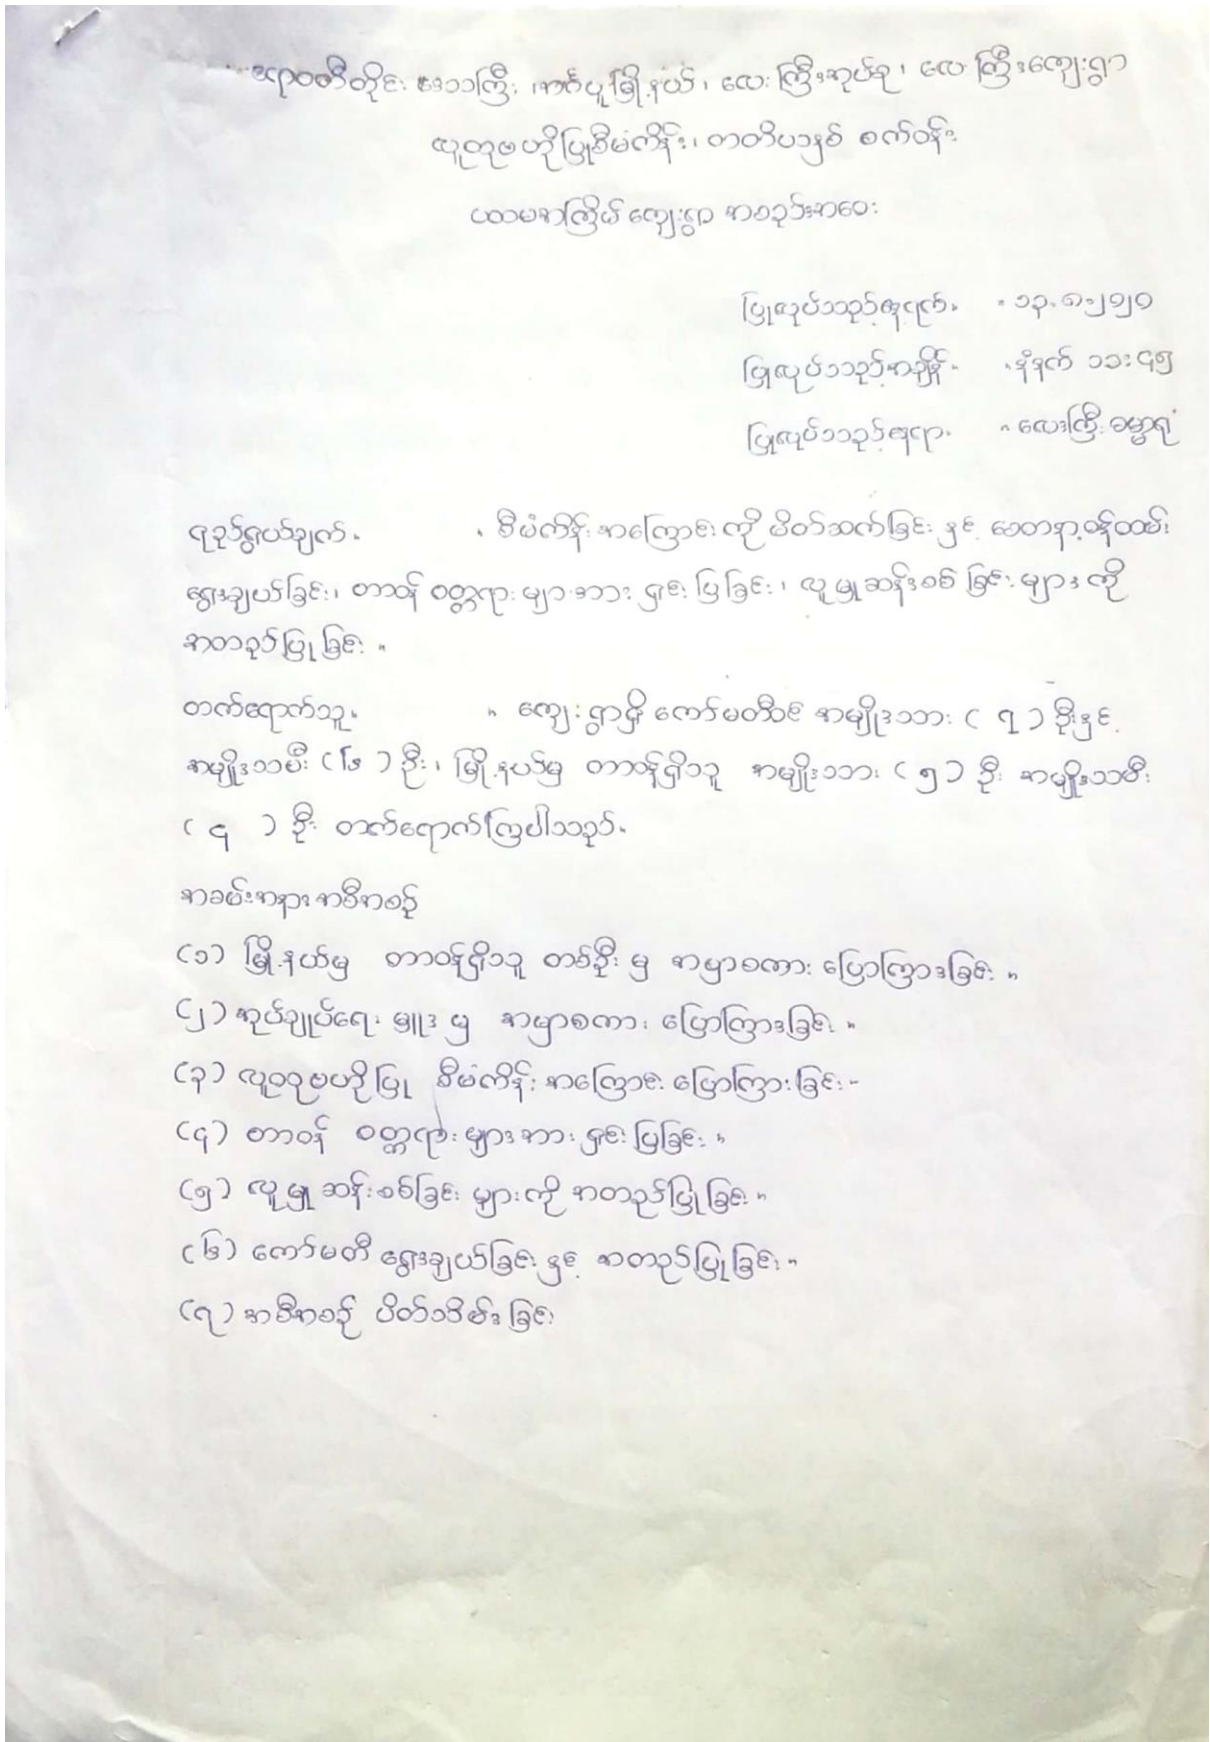 ဧရာဝတီတိုင်းဒေသကြီး၊ အင်္ဂပူမြို့နယ်၊ လေးကြီးအုပ်စု၊ လေးကြီးကျေးရွာ
လူထုဗဟိုပြုစီမံကိန်း၊ တတိယနှစ် စက်ဝန်း
ပထမအကြိမ် ကျေးရွာ အစည်းအဝေး
ပြုလုပ်သည့်နေ့ရက်။ ။ ၁၃.၈.၂၀၂၀
ပြုလုပ်သည့်အချိန်။ ။ နံနက် ၁၁:၄၅
ပြုလုပ်သည့်နေရာ။ ။ လေးကြီး ဓမ္မာရုံ
ရည်ရွယ်ချက်။ ။ စီမံကိန်းအကြောင်းကို မိတ်ဆက်ခြင်းနှင့် စေတနာ့ဝန်ထမ်း
ရွေးချယ်ခြင်း၊ တာဝန် ဝတ္တရားများအား ရှင်းပြခြင်း၊ လူမှုဆန်းစစ်ခြင်းများကို
အတည်ပြုခြင်း။
တက်ရောက်သူ။ ။ ကျေးရွာရှိ ကော်မတီဝင် အမျိုးသား ( ၇ ) ဦးနှင့်
အမျိုးသမီး ( ၆ ) ဦး၊ မြို့နယ်မှ တာဝန်ရှိသူ အမျိုးသား ( ၅ ) ဦး အမျိုးသမီး
( ၄ ) ဦး တက်ရောက်ကြပါသည်။
အခမ်းအနားအစီအစဉ်
(၁) မြို့နယ်မှ တာဝန်ရှိသူ တစ်ဦးမှ အမှာစကား ပြောကြားခြင်း။
(၂) အုပ်ချုပ်ရေးမှူးမှ အမှာစကား ပြောကြားခြင်း။
(၃) လူထုဗဟိုပြု စီမံကိန်းအကြောင်း ပြောကြားခြင်း။
(၄) တာဝန် ဝတ္တရားများအား ရှင်းပြခြင်း။
(၅) လူမှုဆန်းစစ်ခြင်းများကို အတည်ပြုခြင်း။
(၆) ကော်မတီ ရွေးချယ်ခြင်းနှင့် အတည်ပြုခြင်း။
(၇) အစီအစဉ် ပိတ်သိမ်းခြင်း